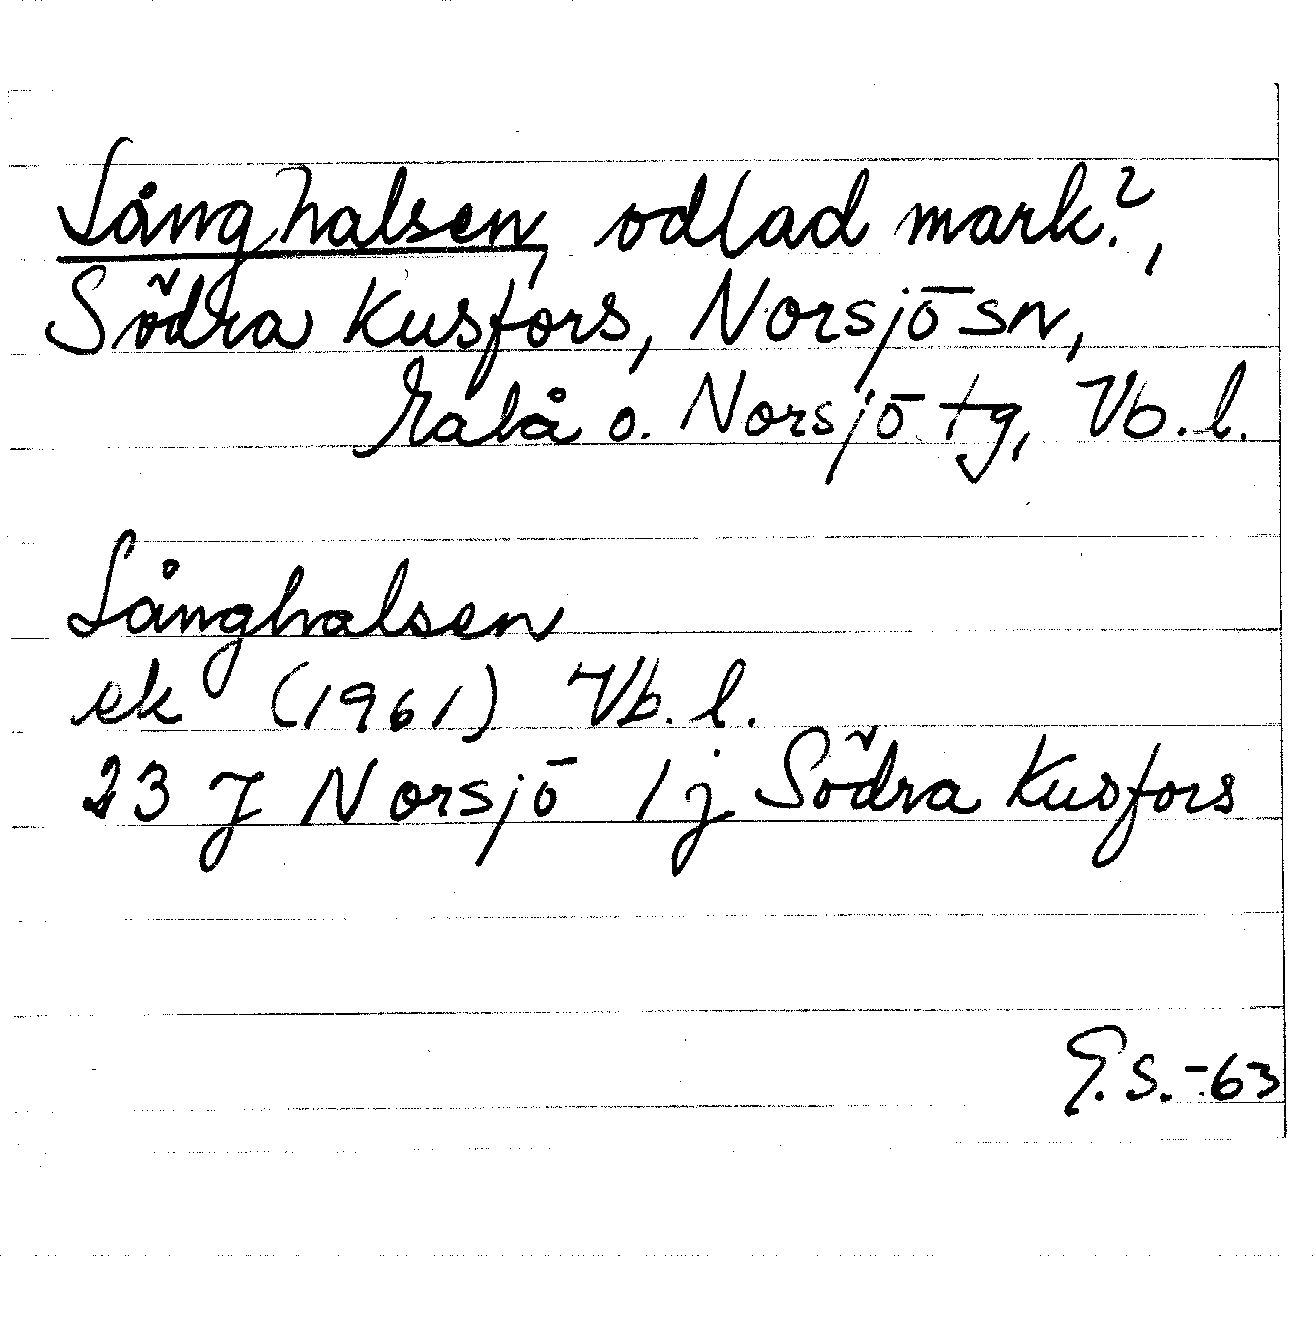 Långhalsen, odlad mark?,
Södra Kusfors, Norsjö sn,
Malå o. Norsjö tg, Vb. l.
Långhalsen
ek (1961) Vb. l.
23 J Norsjö 1 j Södra Kusfors
E. S. -63